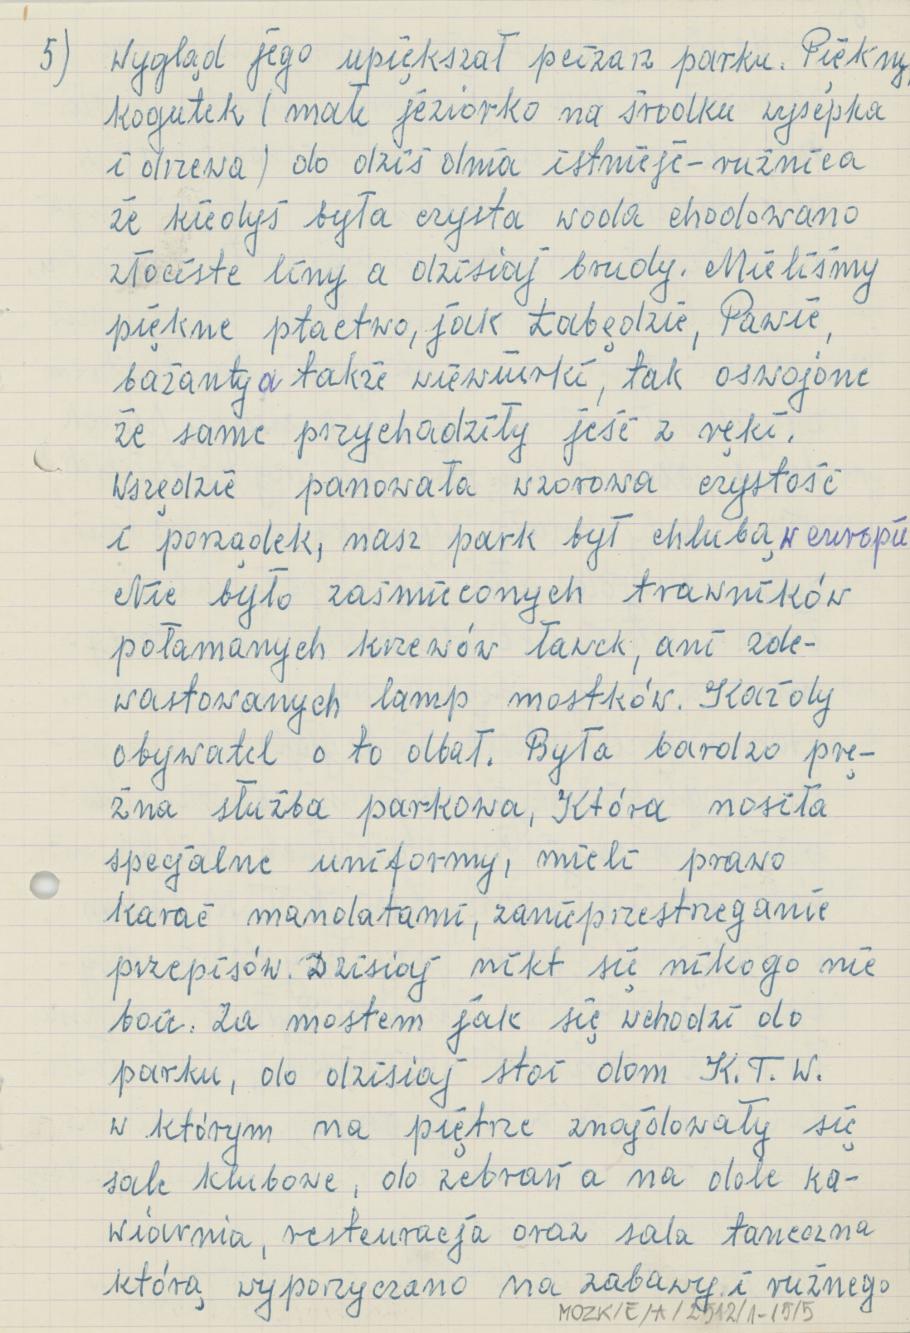 5) Wygląd jego upiększał peizarz parku. Piękny
kogutek (małe jeziorko na środku wysepka
i drzewa) do dziś dnia istnieje-rużnica
że kiedyś była czysta woda chodowano
złociste liny a dzisiaj brudy. Mieliśmy
piękne ptactwo, jak Łabędzie, Pawie,
bażanty a także wiewiurki, tak oswojone
że same przychadziły jeść z ręki.
Wszędzie panowała wzorowa czystość
i porządek, nasz park był chlubą w europie
Nie było zaśmieconych trawników
połamanych krzewów ławek, ani zde-
wastowanych lamp mostków. Każdy
obywatel o to dbał. Była bardzo prę-
żna służba parkowa, Która nosiła
specjalne uniformy, mieli prawo
karać mandatami, zanieprzestrzeganie
przepisów. Dzisiaj nikt się nikogo nie
boii. Za mostem jak się wchodzi do
parku, do dzisiaj stoi dom K.T.W.
w którym na piętrze znajdowały się
sale klubowe, do zebrań a na dole ka-
wiarnia, resteuracja oraz sala taneczna
którą wyporzyczano na zabawy i rużnego
MOZK/E/A/2512/1-15/5